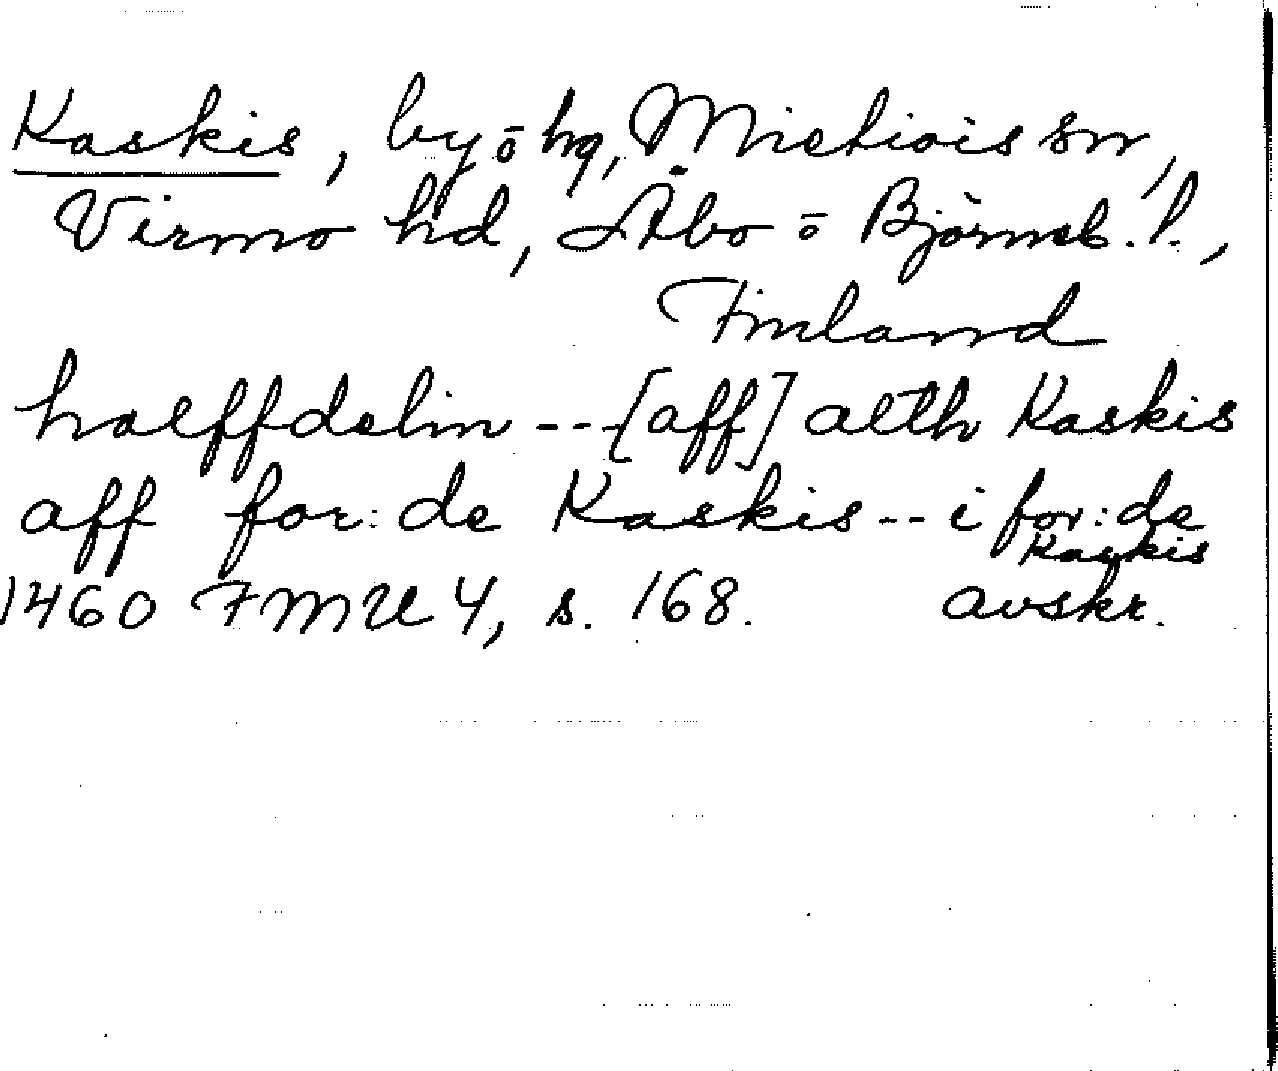 Kaskis, by ō hg, Mietiois sn,
Virmo hd, Åbo ō Björneb. l.,
Finland
halffdelin --- [aff] alth Kaskis
aff for:de Kaskis -- i for:de
Kaskis
1460 FMU 4, s. 168. avskr.